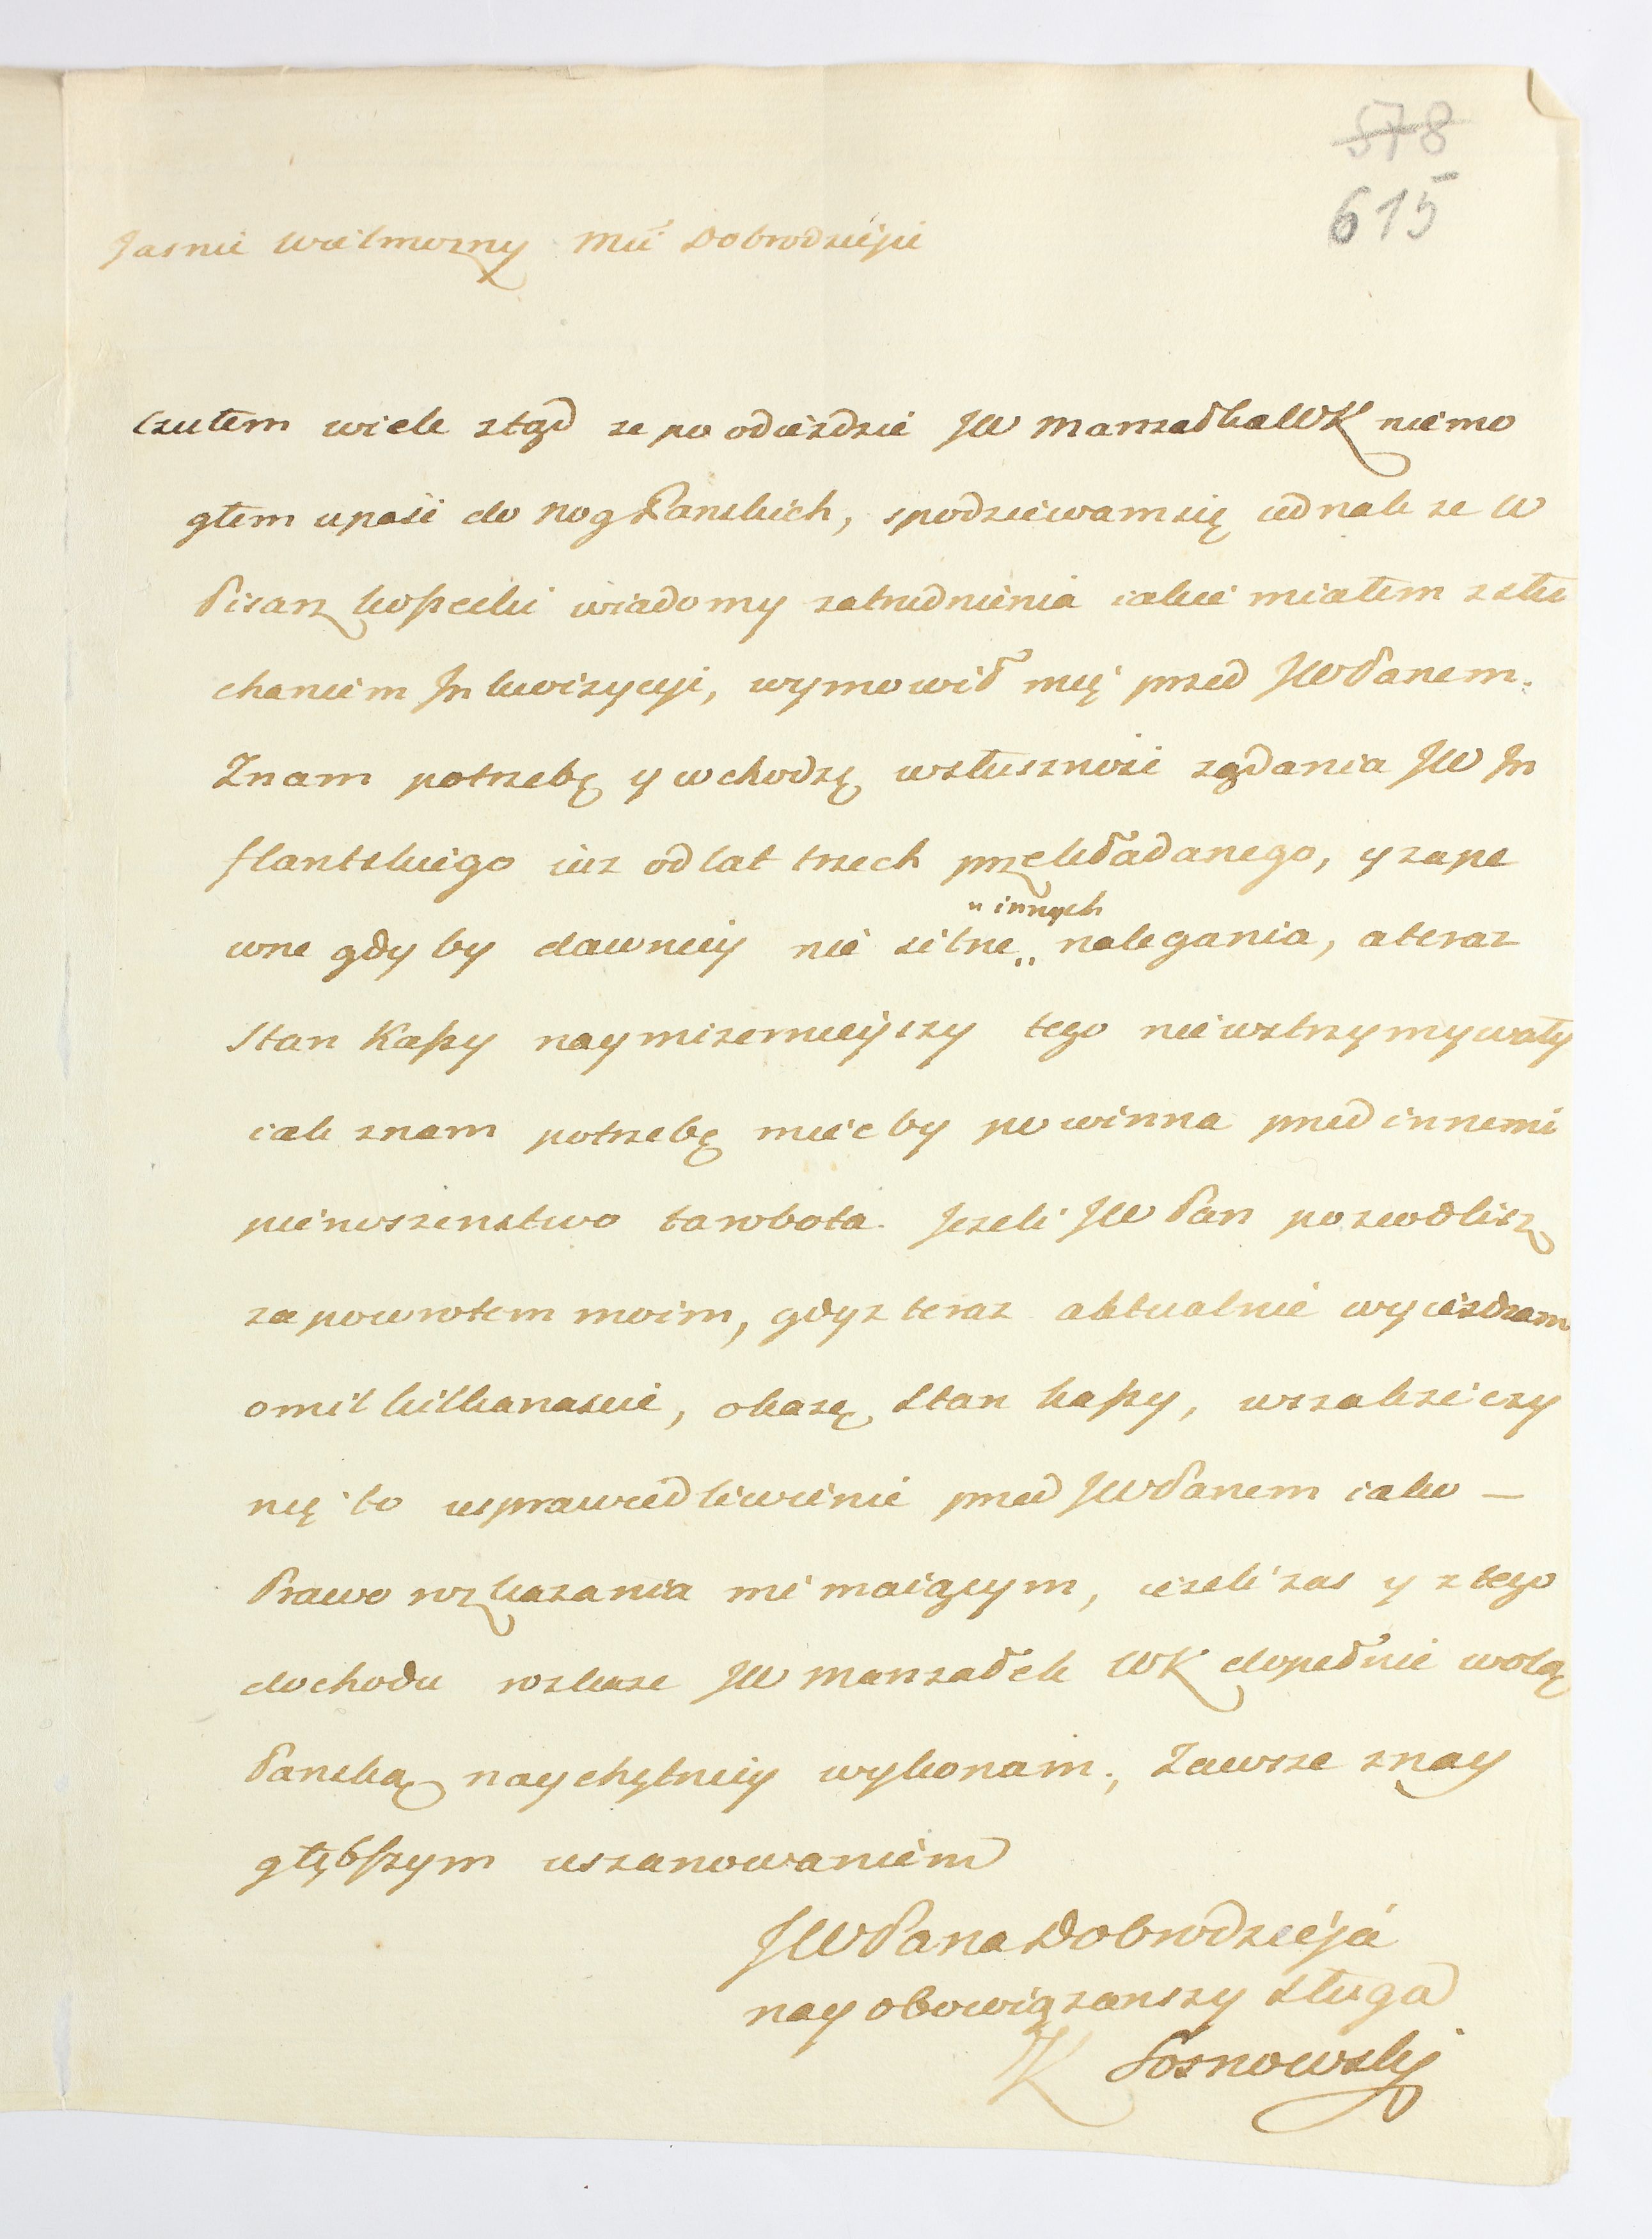 578
615
Jasnie Wielmozny Mći Dobrodzieju
Czułem wiele ztąd ze po odieździe JW Marszałka WK niemo
głem upaść do nog Panskich, spodziewam się iednak ze W
Pisarz kossecki wiadomy zatrudnienia iakie miałem z słu
chaniem Inkwizycyi, wymowił mię przed JWPanem.
Znam potrzebę y wchodzę w słuszność ządania JW In
flantskiego iuz od lat trzech przekładanego, y zape
wne gdy by dawniey nie silne innych nalegania, a teraz
Stan Kassy naymizernieyszy tego nie wstrzymywały
iak znam potrzebę mieć by powinna przed innemi
pierwszenstwo ta robota. Jezeli JW Pan pozwolisz
za powrotem moim, gdyz teraz aktualnie wyiezdzam
o mil kilkanascie, okazę Stan kassy, wszakze czy
nię to usprawiedliwienie przed JWPanem iako —
Prawo rozkazania mi maiącym, iezeli zas y z tego
dochodu rozkaze JW Marszałek WK dopełnie wolą
Panską naychętniey wykonam; Zawsze z nay
głębszym uszanowaniem
JWPana Dobrodzieja
nay obowiązanszy sługa
K Sosnowsky